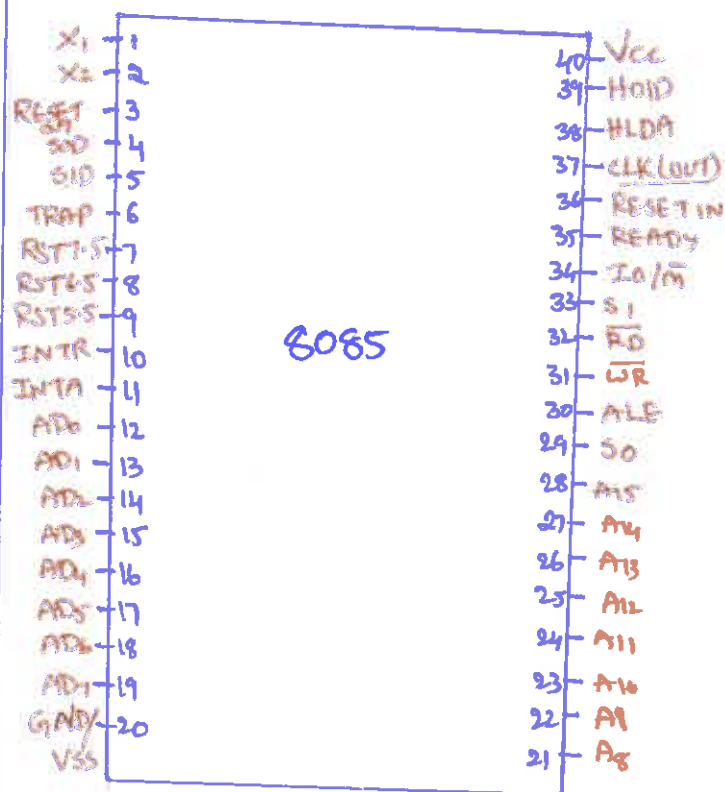 X₁ 1
X₂ 2
RESET OUT 3
SOD 4
SID 5
TRAP 6
RST7.5 7
RST6.5 8
RST5.5 9
INTR 10
INTA 11
AD₀ 12
AD₁ 13
AD₂ 14
AD₃ 15
AD₄ 16
AD₅ 17
AD₆ 18
AD₇ 19
GND/ 20
VSS
8085
40 Vcc
39 HOLD
38 HLDA
37 CLK(OUT)
36 R̅E̅S̅E̅T̅ ̅I̅N̅
35 READY
34 IO/M̅
33 S1
32 R̅D̅
31 W̅R̅
30 ALE
29 S0
28 A15
27 A14
26 A13
25 A12
24 A11
23 A10
22 A9
21 A8